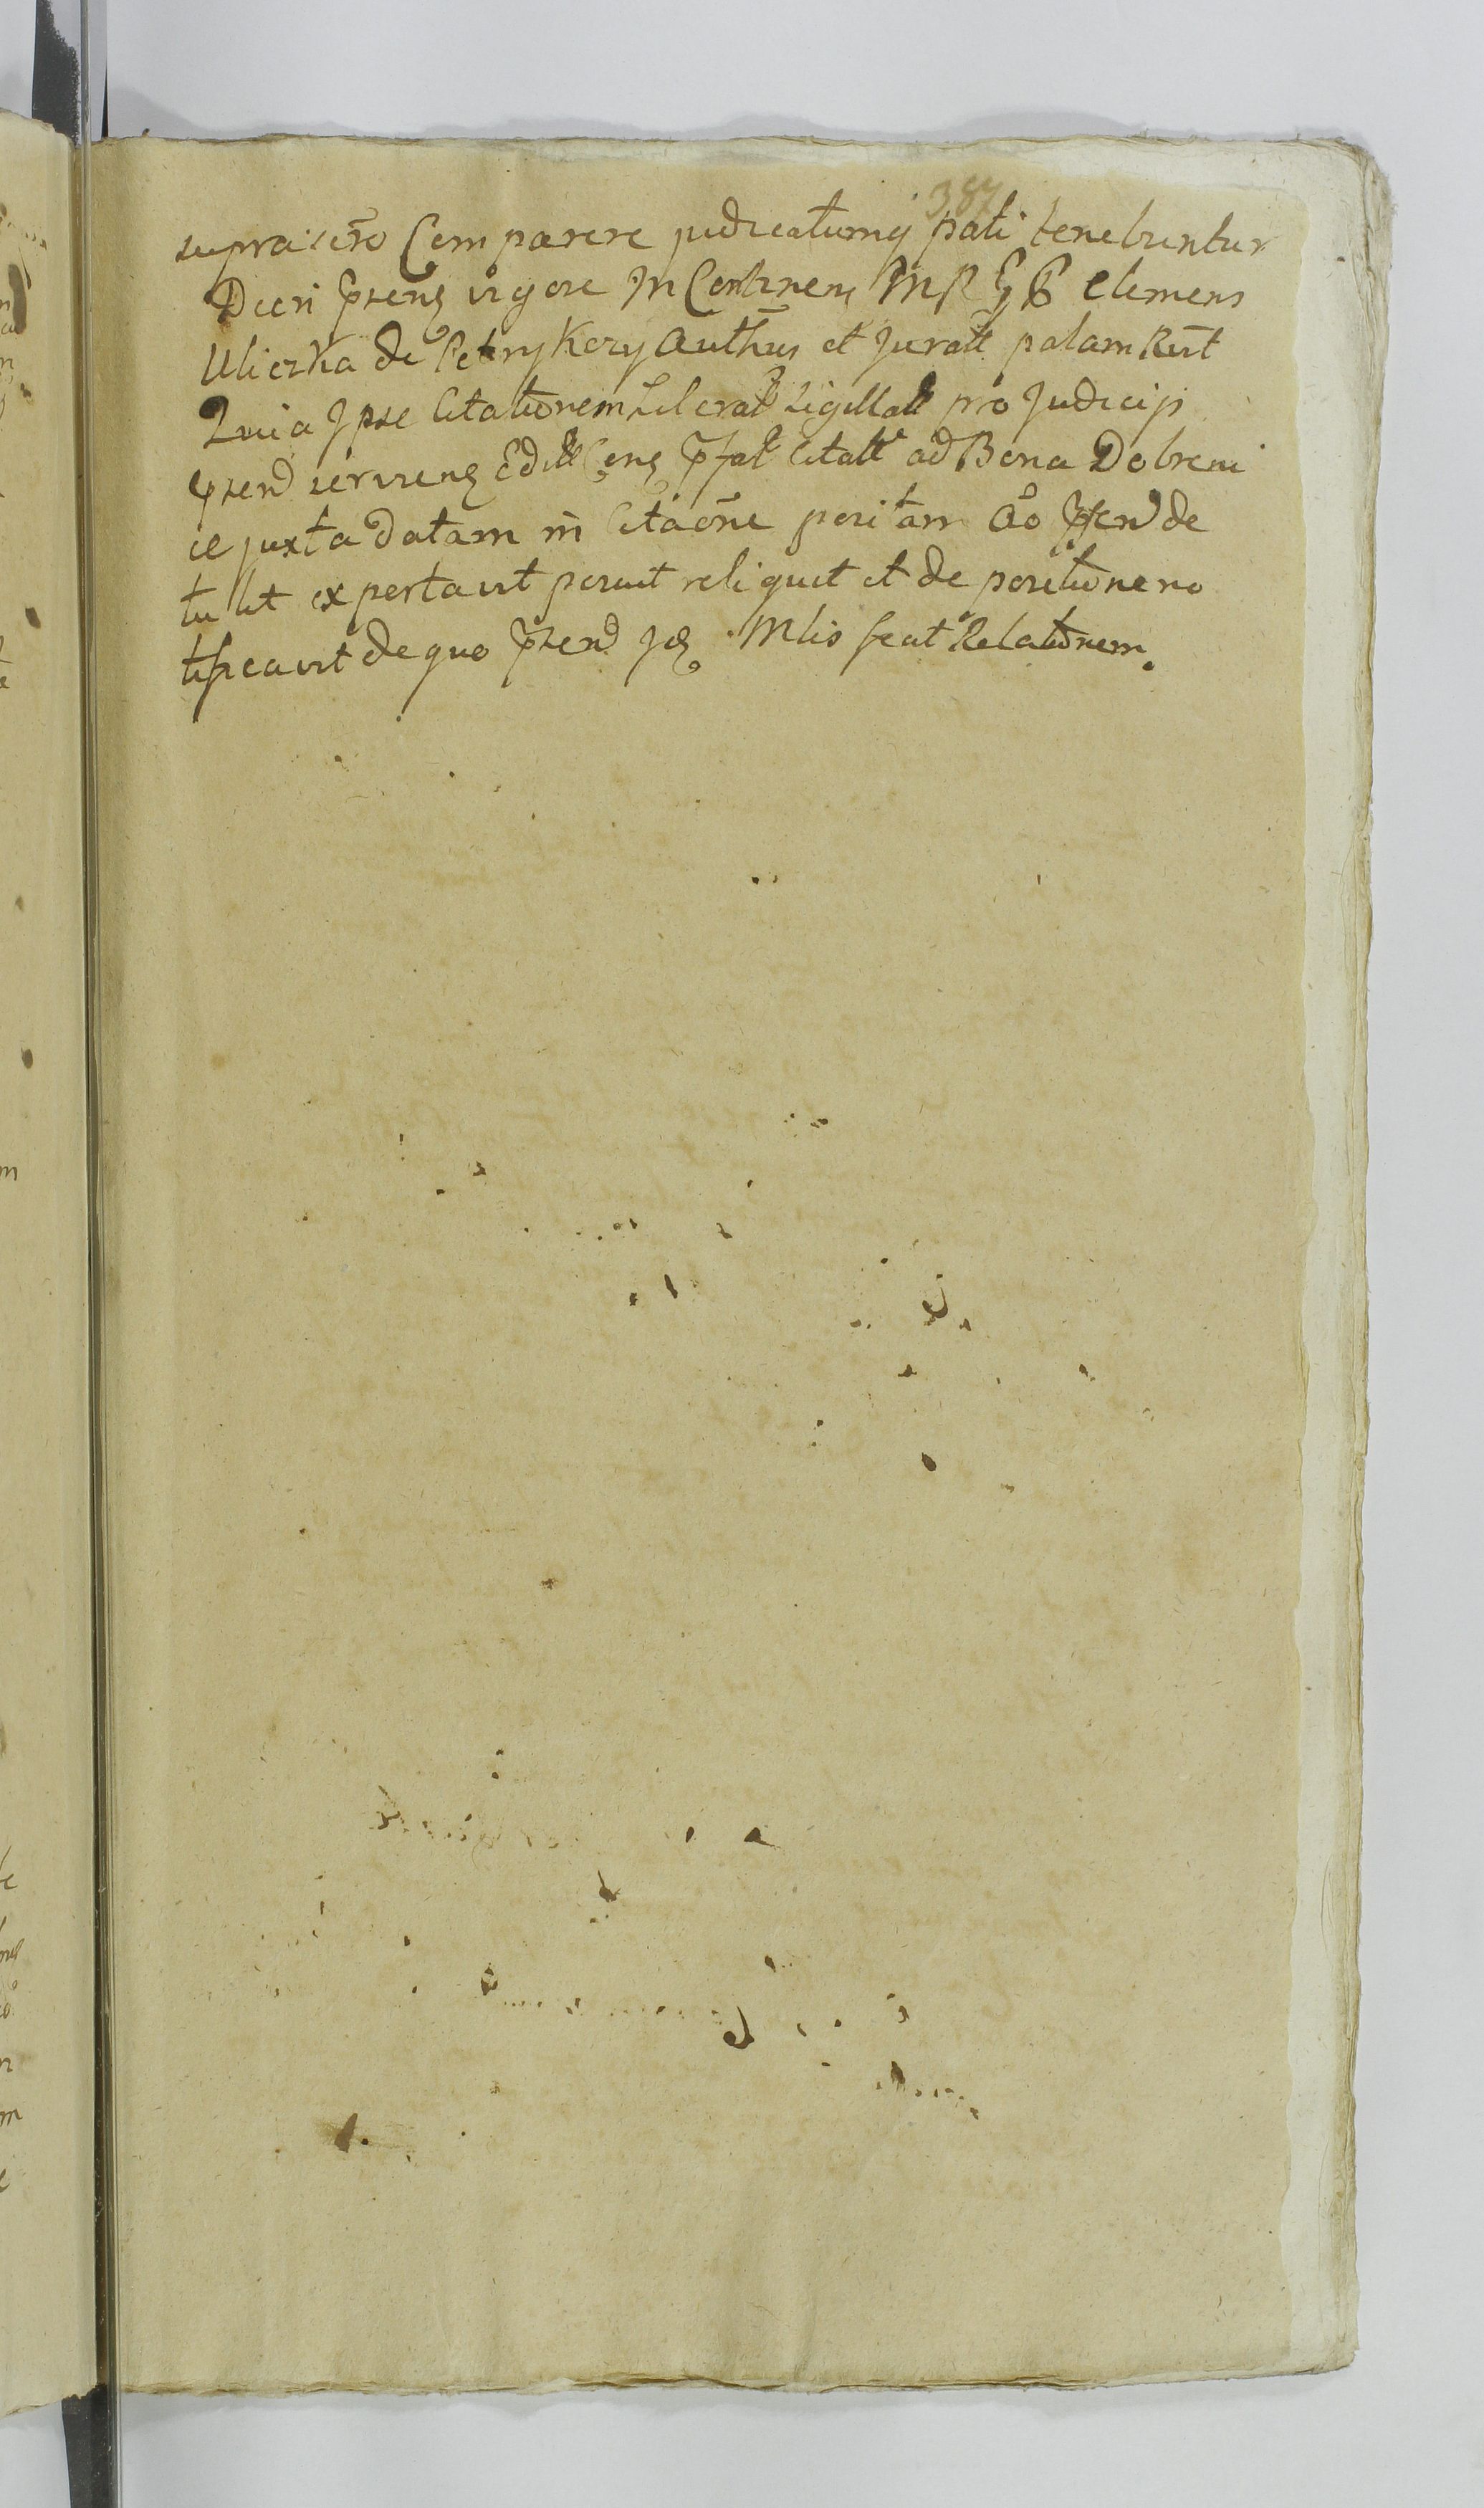 387
supra scro Comparere judicatumq pati tenebuntur
Decri pseng vigore In Continen MR clemens
Uliczka de Petrykozy Authus et Juratt palam Rut
Quia Ipse Citationem Literat Sigillatt pro Judicijs
psend serviens Editt Cens pfat Citatt ad Bona Dobreni
ce juxta datam in Citaone positam Ao psend de
tulit exportavit posuit reliquit et de positione no
tificavit de quo psend Mlis fecit Relationem.